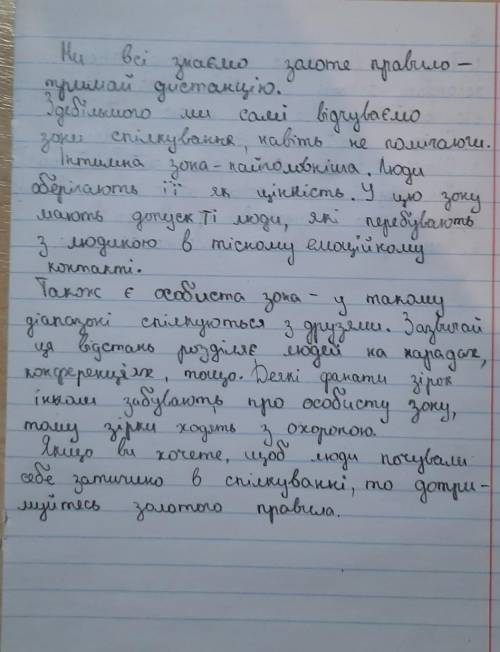 Ми всі знаємо золоте правило –
тримай дистанцію.
Здебільшого ми самі відчуваємо
зони спілкування, навіть не помічаючи.
Інтимна зона – найголовніша. Люди
оберігають її як цінність. У цю зону
мають допуск ті люди, які перебувають
з людиною в тісному емоційному
контакті.
Також є особиста зона – у такому
діапазоні спілкуються з друзями. Зазвичай
ця відстань розділяє людей на нарадах,
конференціях, тощо. Деякі фанати зірок
інколи забувають про особисту зону,
тому зірки ходять з охороною.
Якщо ви хочете, щоб люди почували
себе затишно в спілкуванні, то дотри-
муйтесь золотого правила.